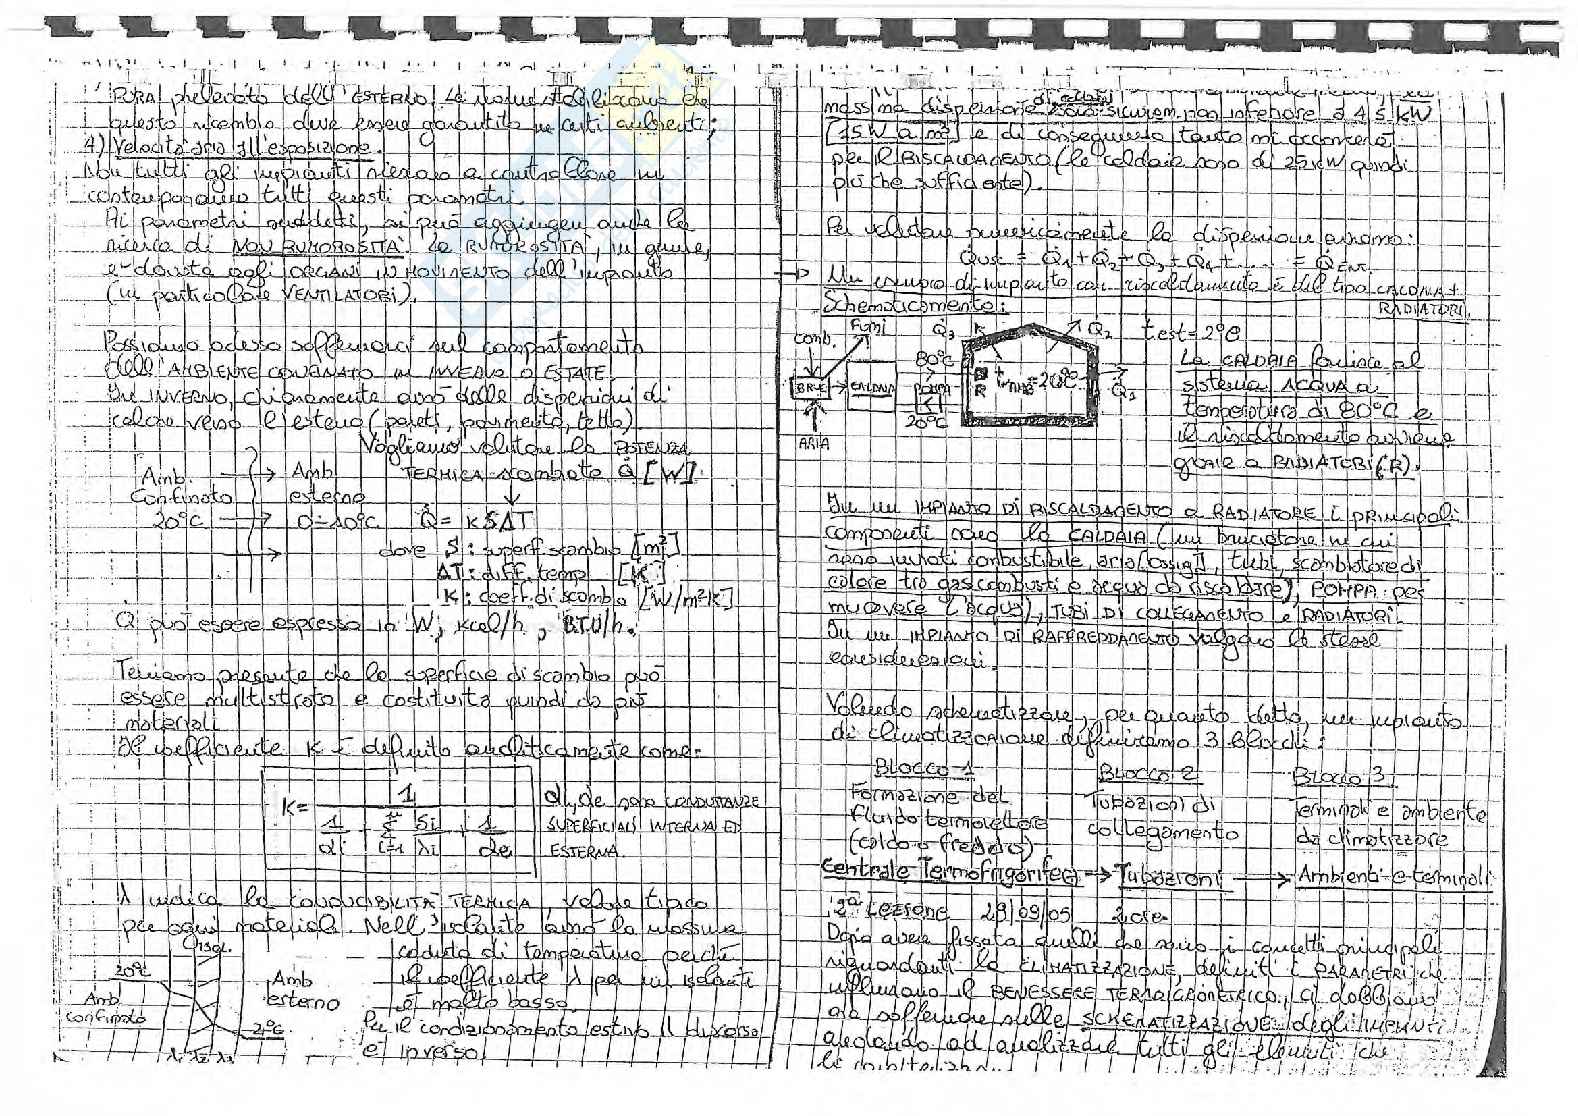 PURA prelevata dall'ESTERNO. Le
questo ricambio deve essere garantito in certi ambienti;
4) Velocità aria all'esposizione.
Non tutti gli impianti riescono a controllare in
contemporanea tutti questi parametri.
Ai parametri suddetti, si può aggiungere anche la
ricerca di NON RUMOROSITÀ. La RUMOROSITÀ, in genere,
è dovuta agli ORGANI IN MOVIMENTO dell'impianto
(in particolare VENTILATORI).
Possiamo adesso soffermarci sul comportamento
dell'AMBIENTE CONFINATO in INVERNO o ESTATE.
In INVERNO, chiaramente avrò delle dispersioni di
calore verso l'esterno (pareti, pavimento, tetto).
Vogliamo valutare la POTENZA
TERMICA scambiata Q̇ [W].
Amb. Confinato 20°C
Amb esterno 0÷10°C
Q̇ = K S ΔT
dove S: superf. scambio [m²]
ΔT: diff. temp [K]
K: coeff. di scambio [W/m²K]
Q̇ può essere espressa in W, Kcal/h, BTU/h.
Teniamo presente che la superficie di scambio può
essere multistrato e costituita quindi da più
materiali
Il coefficiente K è definito analiticamente come:
K = 1 / (1/αi + Σ i=1 n Si/λi + 1/αe)
αi, αe sono CONDUTTANZE
SUPERFICIALI INTERNA ED
ESTERNA.
λ indica la CONDUCIBILITÀ TERMICA, valore tipico
per ogni materiale. Nell'isolante avrò la massima
caduta di temperatura perché
il coefficiente λ per un isolante
è molto basso.
Per il condizionamento estivo il discorso
è inverso
isol.
20°C
Amb confinato
Amb esterno
2°C
λ1 λ2 λ3
massima dispersione sicurem. non inferiore a 4,5 kW
[75W a m²] e di conseguenza tanto mi occorrerà
per il RISCALDAMENTO (le caldaie sono di 25 kW quindi
più che sufficiente).
Per valutare numericamente la dispersione avremo:
Q̇usc = Q̇1 + Q̇2 + Q̇3 + Q̇4 + ..... = Q̇ENT.
→ Un esempio di impianto con riscaldamento è del tipo CALDAIA +
RADIATORI.
Schematicamente:
comb.
Fumi
BR.E
CALDAIA
ARIA
80°C
POMPA
20°C
Q̇3
Q̇2
Q̇1
R
tamb=20°C
test=2°C
La CALDAIA fornisce al
sistema ACQUA a
temperatura di 80°C e
il riscaldamento avviene
grazie a RADIATORI (R).
In un IMPIANTO DI RISCALDAMENTO a RADIATORE i principali
componenti sono la CALDAIA (un bruciatore in cui
sono inviati combustibile, aria [ossig], tubi, scambiatore di
calore tra gas combusti e acqua da riscaldare), POMPA per
muovere l'acqua), TUBI DI COLLEGAMENTO e RADIATORI.
In un IMPIANTO DI RAFFREDDAMENTO valgono le stesse
considerazioni.
Volendo schematizzare, per quanto detto, un impianto
di climatizzazione definiremo 3 blocchi:
BLOCCO 1
Formazione del
fluido termovettore
(caldo o freddo)
BLOCCO 2
Tubazioni di
collegamento
BLOCCO 3
Terminali e ambiente
da climatizzare
Centrale Termofrigorifera → Tubazioni → Ambienti e terminali
2ª LEZIONE 29/09/05 2 ore
Dopo avere fissato quelli che sono i concetti principali
riguardanti la CLIMATIZZAZIONE, definiti i PARAMETRI che
influenzano il BENESSERE TERMOIGROMETRICO, ci dobbiamo
ora soffermare sulle SCHEMATIZZAZIONE degli IMPIANTI
andando ad analizzare tutti gli elementi che